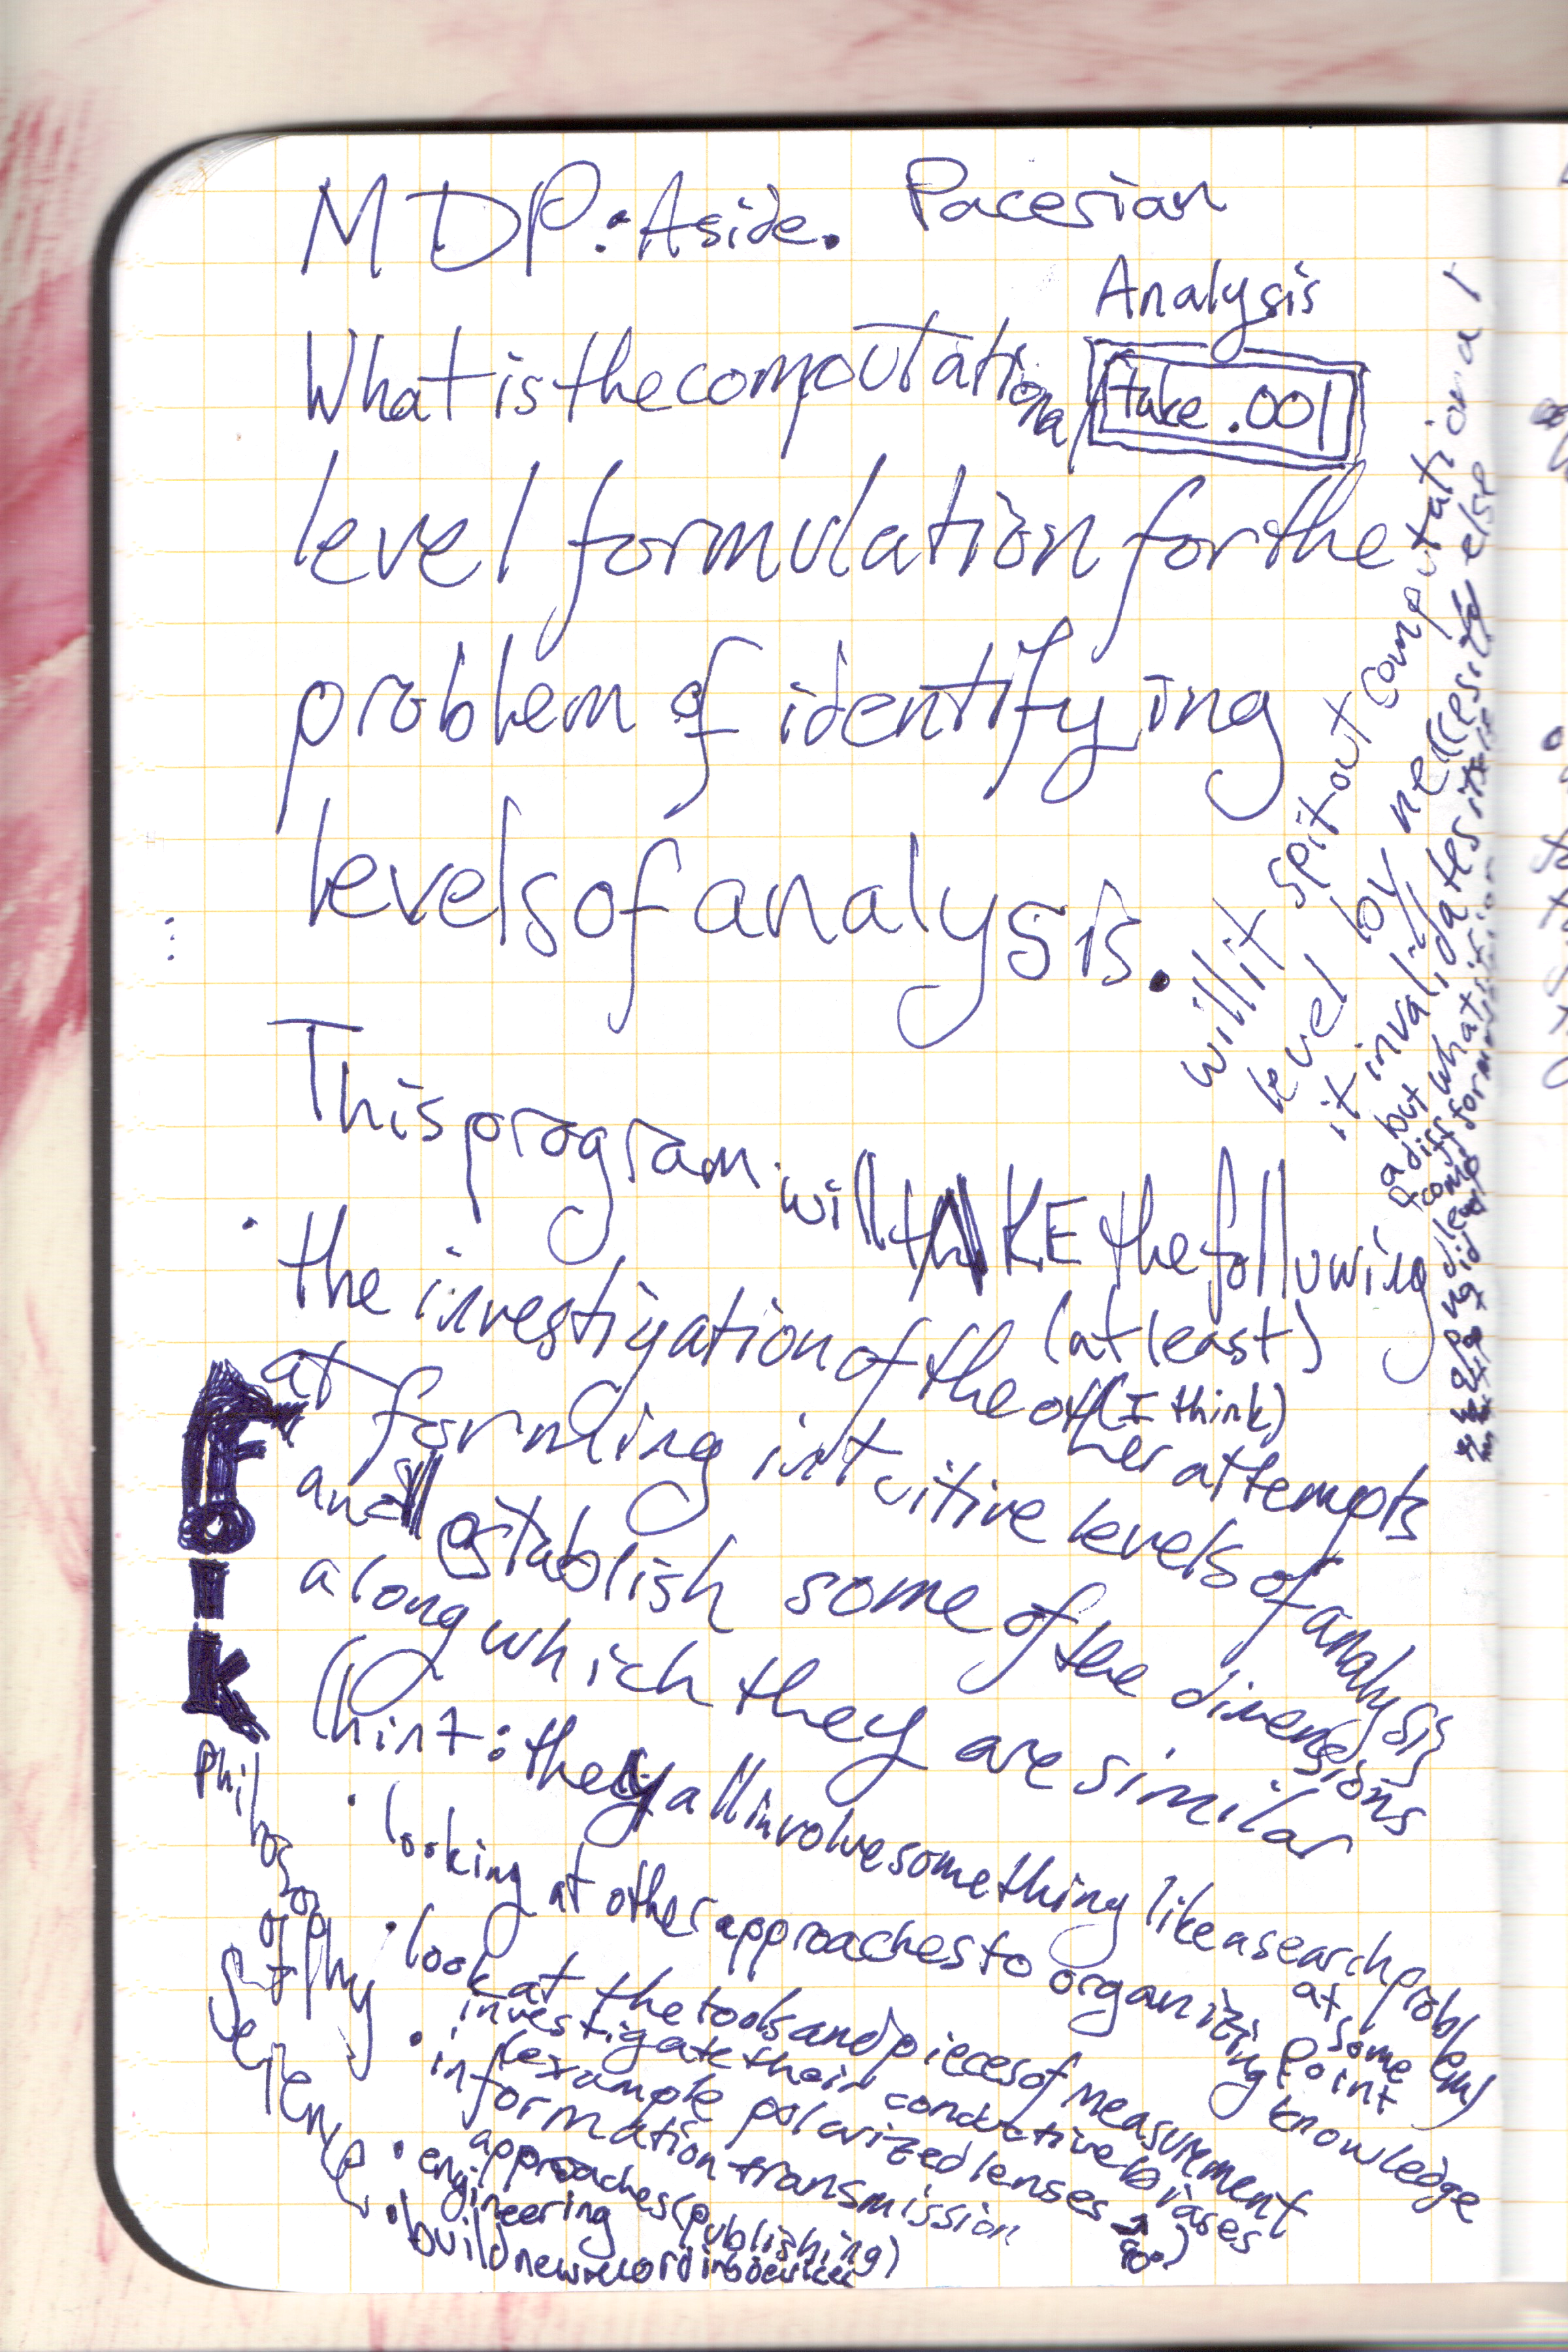 MDP: Aside. Pacesian
Analysis
take .001
What is the computational
level formulation for the
problem of identifying
levels of analysis.
will it spit out computational
level by neccessity
it invalidates itself
a but what is it
This program will tAKE the following
(at least)
(I think)
• the investigation of the other attempts
at forming intuitive levels of analysis
and establish some of the dimensions
along which they are similar
(hint: they all involve something like a search problem)
at some
point
• looking at other approaches to organizing knowledge
• look at the tools and pieces of measurement
investigate their conductive biases
(example polarized lenses → 90°)
• information transmission
approaches (publishing)
• engineering
• build new recording devices
Philosophy
of
Science